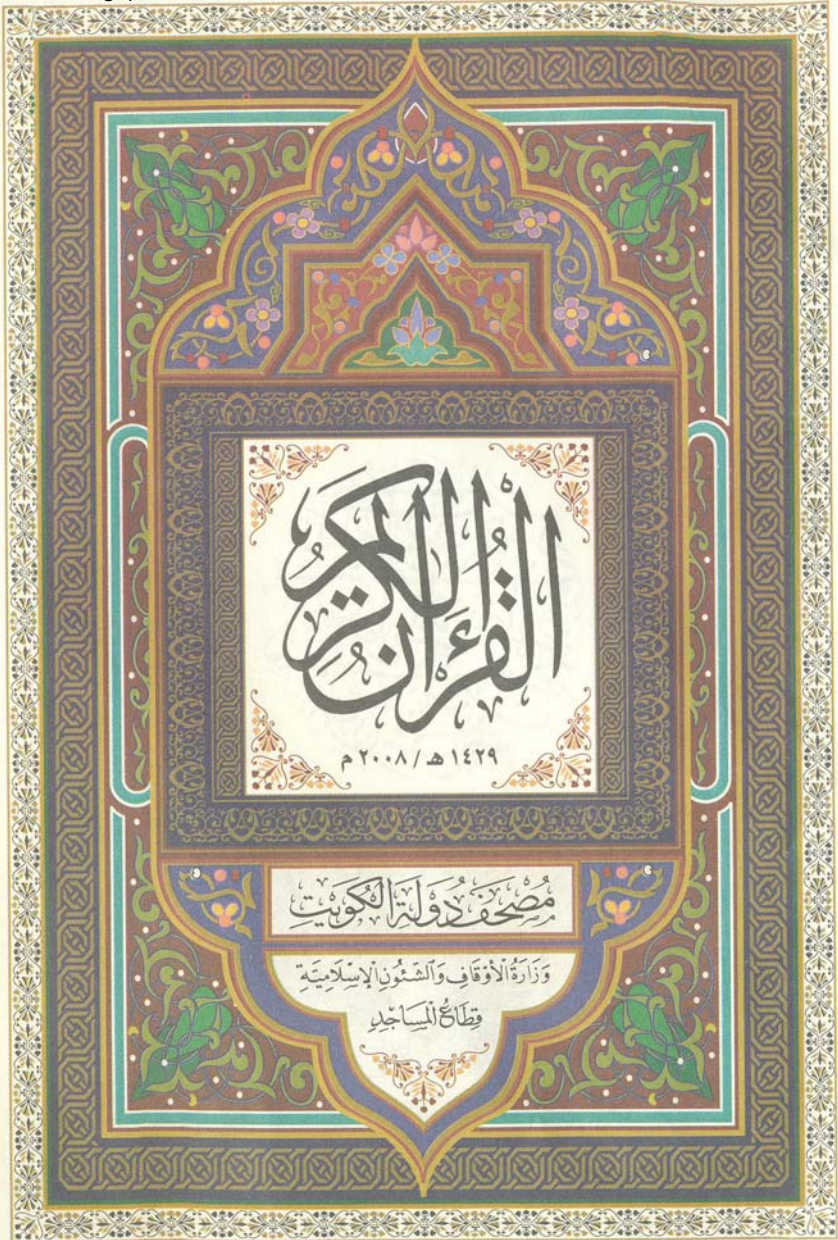 القرءان الكريم
١٤٢٩ هـ / ٢٠٠٨ م
مُصْحَفُ دَوْلَةِ الْكُوَيْتِ
وَزَارَةُ الْأَوْقَافِ وَالشُّئُونِ الْإِسْلَامِيَّةِ
قِطَاعُ الْمَسَاجِدِ